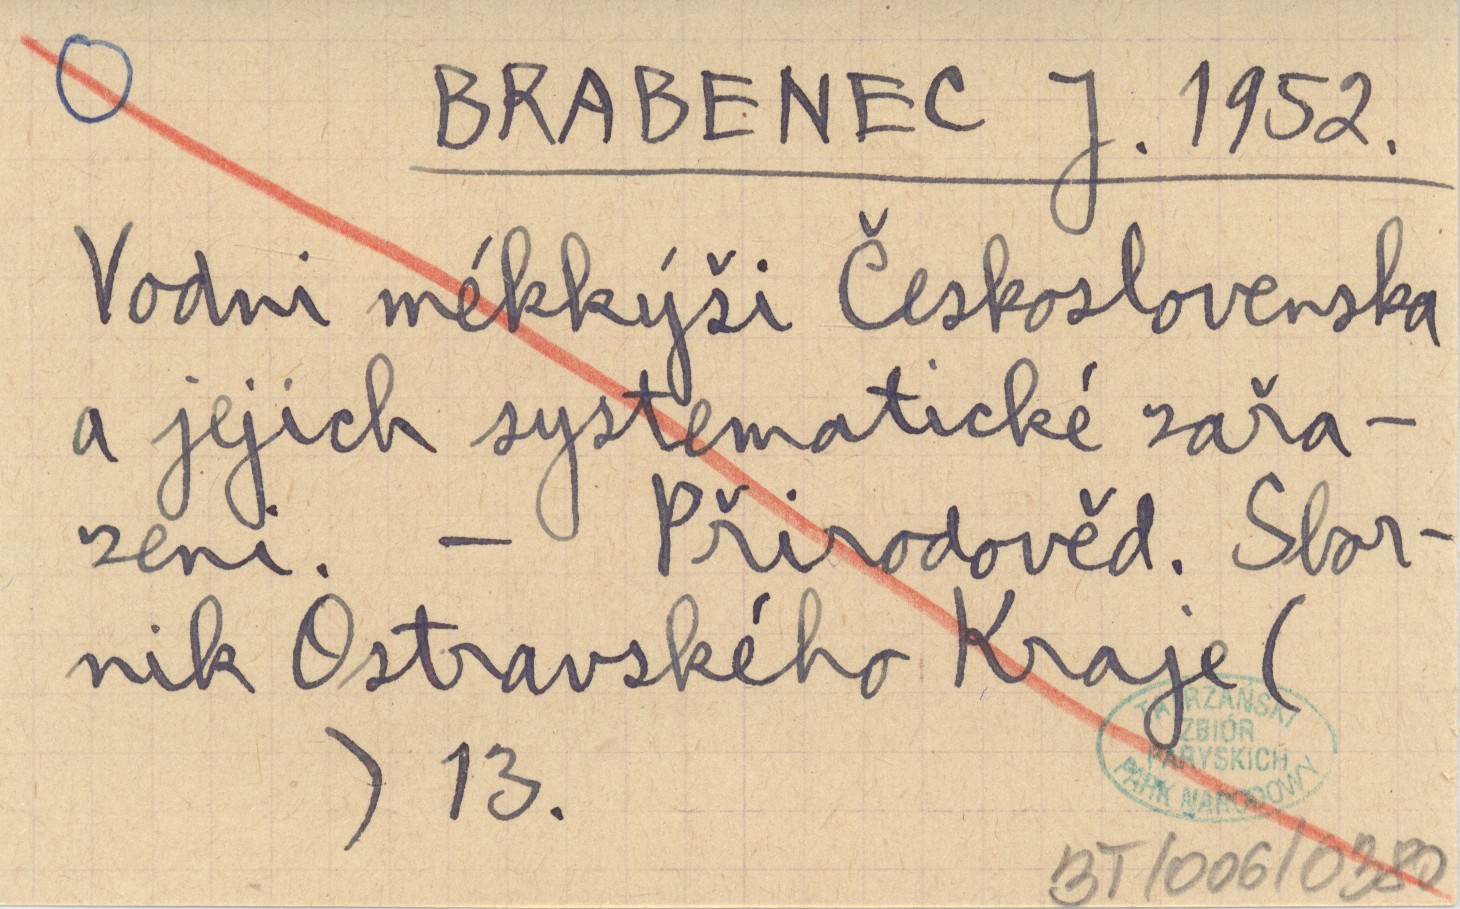 BRABENEC J. 1952.
Vodni mékkýši Československa
a jejich systematické zařa-
zeni. - Přirodověd. Sbor-
nik Ostravského Kraje (
) 13.
TATRZAŃSKI
ZBIÓR
PARYSKICH
PARK NARODOWY
BT/006/0380